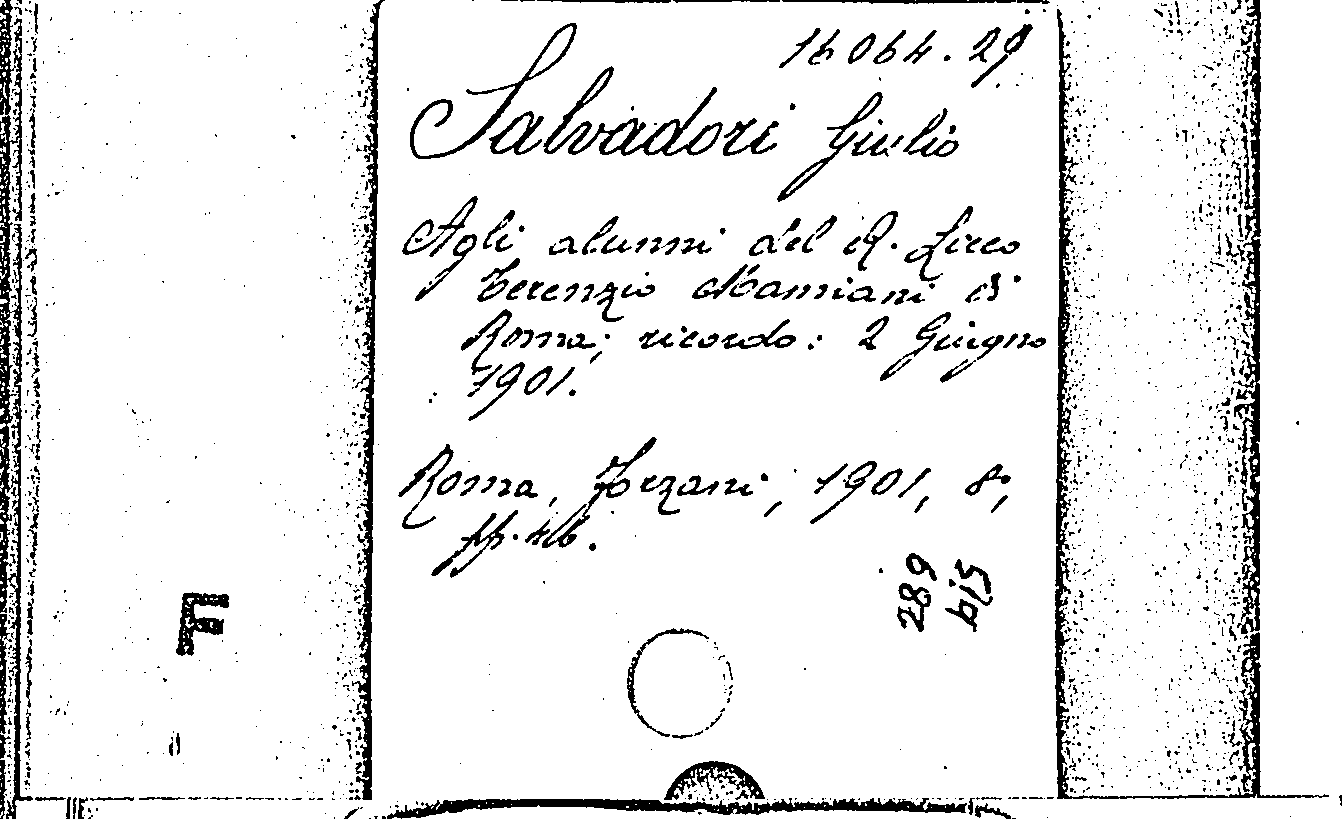 16064.29
Salvadori Giulio
Agli alunni del R. Liceo
Terenzio Mamiani di
Roma; ricordo: 2 Giugno
1901.
Roma, Forzani, 1901, 8°,
pp. 46.
289
bis
F